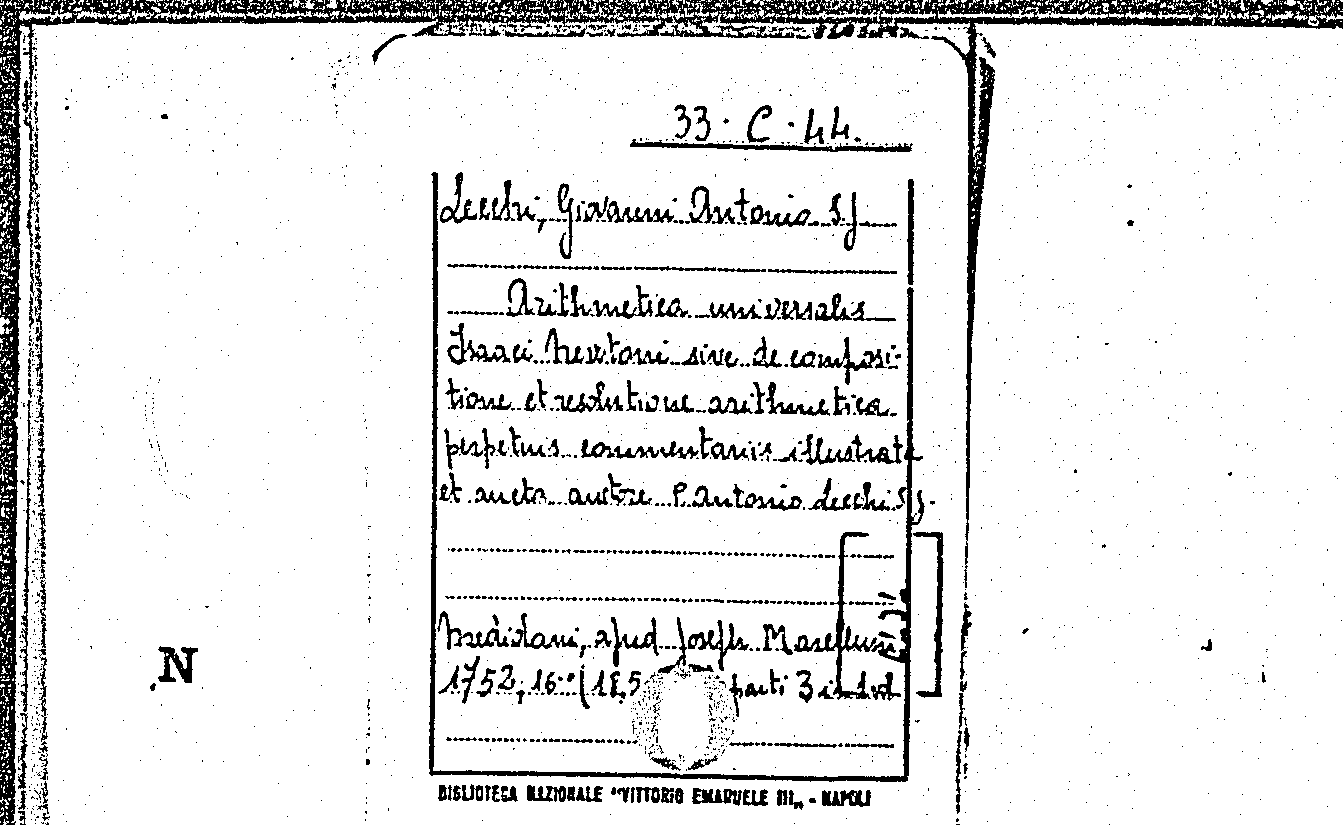 33. C. 44.
Lecchi, Giovanni Antonio S.J
Arithmetica universalis
Isaaci Newtoni sive de composi-
tione et resolutione arithmetica
perpetuis commentariis illustrata
et aucta auctore P. Antonio Lecchi S.J.
Mediolani, apud Joseph Marellum
1752, 16° (18,5 parti 3 in 1 vol
N
BIBLIOTECA NAZIONALE "VITTORIO EMANUELE III„ - NAPOLI